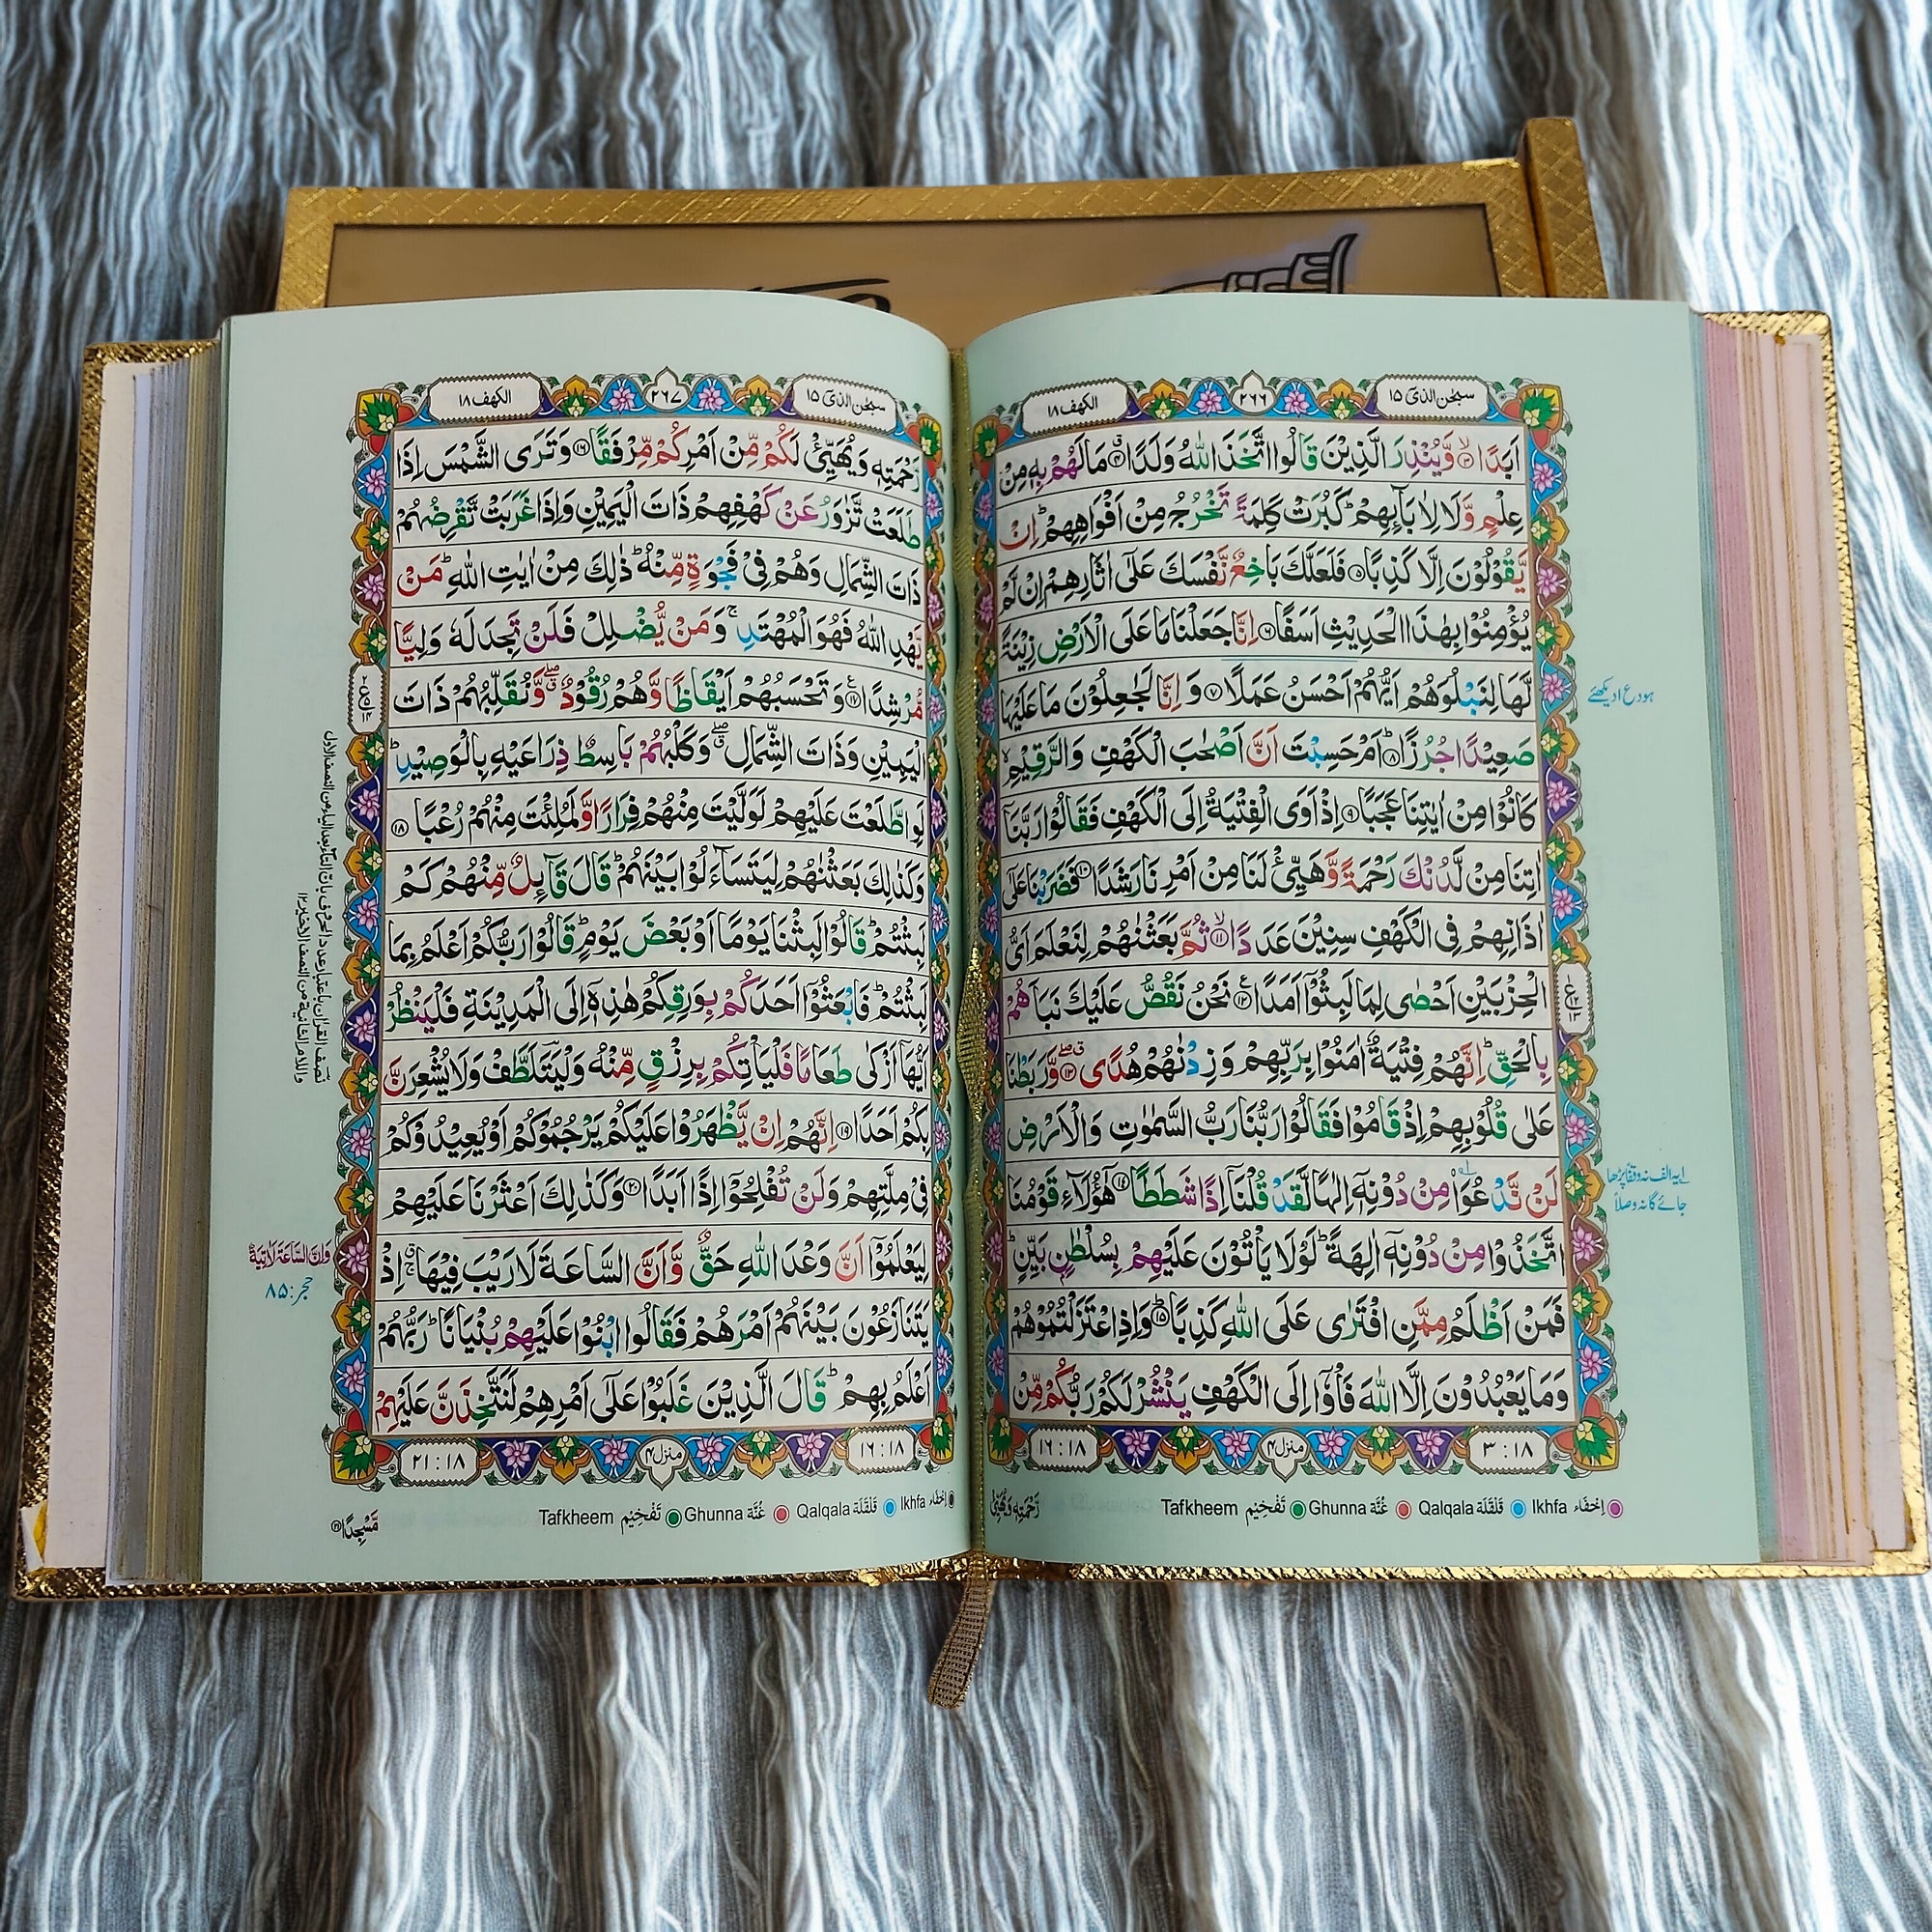 سبحن الذی ۱۵
۲۶۶
الکهف ۱۸
اَبَدًا ۙ﴿۳﴾ وَّیُنْذِرَ الَّذِیْنَ قَالُوا اتَّخَذَ اللّٰهُ وَلَدًا ۗ﴿۴﴾ مَا لَهُمْ بِهٖ مِنْ
عِلْمٍ وَّلَا لِاٰبَآئِهِمْ ؕ كَبُرَتْ كَلِمَةً تَخْرُجُ مِنْ اَفْوَاهِهِمْ ؕ اِنْ
یَّقُوْلُوْنَ اِلَّا كَذِبًا ﴿۵﴾ فَلَعَلَّكَ بَاخِعٌ نَّفْسَكَ عَلٰۤی اٰثَارِهِمْ اِنْ لَّمْ
یُؤْمِنُوْا بِهٰذَا الْحَدِیْثِ اَسَفًا ﴿۶﴾ اِنَّا جَعَلْنَا مَا عَلَی الْاَرْضِ زِیْنَةً
لَّهَا لِنَبْلُوَهُمْ اَیُّهُمْ اَحْسَنُ عَمَلًا ﴿۷﴾ وَ اِنَّا لَجٰعِلُوْنَ مَا عَلَیْهَا
صَعِیْدًا جُرُزًا ﴿۸﴾ؕ اَمْ حَسِبْتَ اَنَّ اَصْحٰبَ الْكَهْفِ وَالرَّقِیْمِ ۙ
كَانُوْا مِنْ اٰیٰتِنَا عَجَبًا ﴿۹﴾ اِذْ اَوَی الْفِتْیَةُ اِلَی الْكَهْفِ فَقَالُوْا رَبَّنَاۤ
اٰتِنَا مِنْ لَّدُنْكَ رَحْمَةً وَّهَیِّئْ لَنَا مِنْ اَمْرِنَا رَشَدًا ﴿۱۰﴾ فَضَرَبْنَا عَلٰۤی
اٰذَانِهِمْ فِی الْكَهْفِ سِنِیْنَ عَدَدًا ۙ﴿۱۱﴾ ثُمَّ بَعَثْنٰهُمْ لِنَعْلَمَ اَیُّ
الْحِزْبَیْنِ اَحْصٰی لِمَا لَبِثُوْۤا اَمَدًا ﴿۱۲﴾ نَحْنُ نَقُصُّ عَلَیْكَ نَبَاَهُمْ
بِالْحَقِّ ؕ اِنَّهُمْ فِتْیَةٌ اٰمَنُوْا بِرَبِّهِمْ وَزِدْنٰهُمْ هُدًی ﴿۱۳﴾ وَّرَبَطْنَا
عَلٰی قُلُوْبِهِمْ اِذْ قَامُوْا فَقَالُوْا رَبُّنَا رَبُّ السَّمٰوٰتِ وَالْاَرْضِ
لَنْ نَّدْعُوَا۟ مِنْ دُوْنِهٖۤ اِلٰهًا لَّقَدْ قُلْنَاۤ اِذًا شَطَطًا ﴿۱۴﴾ هٰۤؤُلَآءِ قَوْمُنَا
اتَّخَذُوْا مِنْ دُوْنِهٖۤ اٰلِهَةً ؕ لَوْلَا یَاْتُوْنَ عَلَیْهِمْ بِسُلْطٰنٍۭ بَیِّنٍ ؕ
فَمَنْ اَظْلَمُ مِمَّنِ افْتَرٰی عَلَی اللّٰهِ كَذِبًا ﴿۱۵﴾ؕ وَاِذِ اعْتَزَلْتُمُوْهُمْ
وَمَا یَعْبُدُوْنَ اِلَّا اللّٰهَ فَاْوٗۤا اِلَی الْكَهْفِ یَنْشُرْ لَكُمْ رَبُّكُمْ مِّنْ
۳ : ۱۸
منزل ۴
۱۶ : ۱۸
ہودع ۱ دیکھئے
لہ یہ الف نہ وقفاً پڑھا
جائے گا نہ وصلاً
Tafkheem تَفْخِیْم Ghunna غُنَّة Qalqala قَلْقَلَة Ikhfa اِخْفَاء
رَّحْمَتِهٖ وَیُهَیِّئْ
سبحن الذی ۱۵
۲۶۷
الکهف ۱۸
رَّحْمَتِهٖ وَیُهَیِّئْ لَكُمْ مِّنْ اَمْرِكُمْ مِّرْفَقًا ﴿۱۶﴾ وَتَرَی الشَّمْسَ اِذَا
طَلَعَتْ تَّزٰوَرُ عَنْ كَهْفِهِمْ ذَاتَ الْیَمِیْنِ وَاِذَا غَرَبَتْ تَّقْرِضُهُمْ
ذَاتَ الشِّمَالِ وَهُمْ فِیْ فَجْوَةٍ مِّنْهُ ؕ ذٰلِكَ مِنْ اٰیٰتِ اللّٰهِ ؕ مَنْ
یَّهْدِ اللّٰهُ فَهُوَ الْمُهْتَدِ ۚ وَمَنْ یُّضْلِلْ فَلَنْ تَجِدَ لَهٗ وَلِیًّا
مُّرْشِدًا ﴿۱۷﴾ وَتَحْسَبُهُمْ اَیْقَاظًا وَّهُمْ رُقُوْدٌ ۖۗ وَّنُقَلِّبُهُمْ ذَاتَ
الْیَمِیْنِ وَذَاتَ الشِّمَالِ ۖۗ وَكَلْبُهُمْ بَاسِطٌ ذِرَاعَیْهِ بِالْوَصِیْدِ ؕ
لَوِ اطَّلَعْتَ عَلَیْهِمْ لَوَلَّیْتَ مِنْهُمْ فِرَارًا وَّلَمُلِئْتَ مِنْهُمْ رُعْبًا ﴿۱۸﴾
وَكَذٰلِكَ بَعَثْنٰهُمْ لِیَتَسَآءَلُوْا بَیْنَهُمْ ؕ قَالَ قَآئِلٌ مِّنْهُمْ كَمْ
لَبِثْتُمْ ؕ قَالُوْا لَبِثْنَا یَوْمًا اَوْ بَعْضَ یَوْمٍ ؕ قَالُوْا رَبُّكُمْ اَعْلَمُ بِمَا
لَبِثْتُمْ ؕ فَابْعَثُوْۤا اَحَدَكُمْ بِوَرِقِكُمْ هٰذِهٖۤ اِلَی الْمَدِیْنَةِ فَلْیَنْظُرْ
اَیُّهَاۤ اَزْكٰی طَعَامًا فَلْیَاْتِكُمْ بِرِزْقٍ مِّنْهُ وَلْیَتَلَطَّفْ وَلَا یُشْعِرَنَّ
بِكُمْ اَحَدًا ﴿۱۹﴾ اِنَّهُمْ اِنْ یَّظْهَرُوْا عَلَیْكُمْ یَرْجُمُوْكُمْ اَوْ یُعِیْدُوْكُمْ
فِیْ مِلَّتِهِمْ وَلَنْ تُفْلِحُوْۤا اِذًا اَبَدًا ﴿۲۰﴾ وَكَذٰلِكَ اَعْثَرْنَا عَلَیْهِمْ
لِیَعْلَمُوْۤا اَنَّ وَعْدَ اللّٰهِ حَقٌّ وَّاَنَّ السَّاعَةَ لَا رَیْبَ فِیْهَا ۚ اِذْ
یَتَنَازَعُوْنَ بَیْنَهُمْ اَمْرَهُمْ فَقَالُوا ابْنُوْا عَلَیْهِمْ بُنْیَانًا ؕ رَبُّهُمْ
اَعْلَمُ بِهِمْ ؕ قَالَ الَّذِیْنَ غَلَبُوْا عَلٰۤی اَمْرِهِمْ لَنَتَّخِذَنَّ عَلَیْهِمْ
۱۶ : ۱۸
منزل ۴
۲۱ : ۱۸
وَاِنَّ السَّاعَةَ لَاٰتِیَةٌ
حجر : ۸۵
Tafkheem تَفْخِیْم Ghunna غُنَّة Qalqala قَلْقَلَة Ikhfa اِخْفَاء
مَّسْجِدًا ﴿۲۱﴾